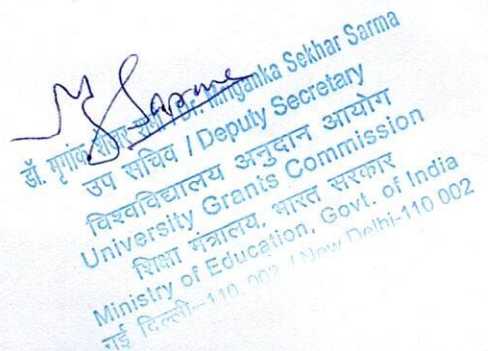 M S Sarma
डॉ. मृगांक शेखर शर्मा / Dr. Mriganka Sekhar Sarma
उप सचिव / Deputy Secretary
विश्वविद्यालय अनुदान आयोग
University Grants Commission
शिक्षा मंत्रालय, भारत सरकार
Ministry of Education, Govt. of India
नई दिल्ली-110 002 / New Delhi-110 002